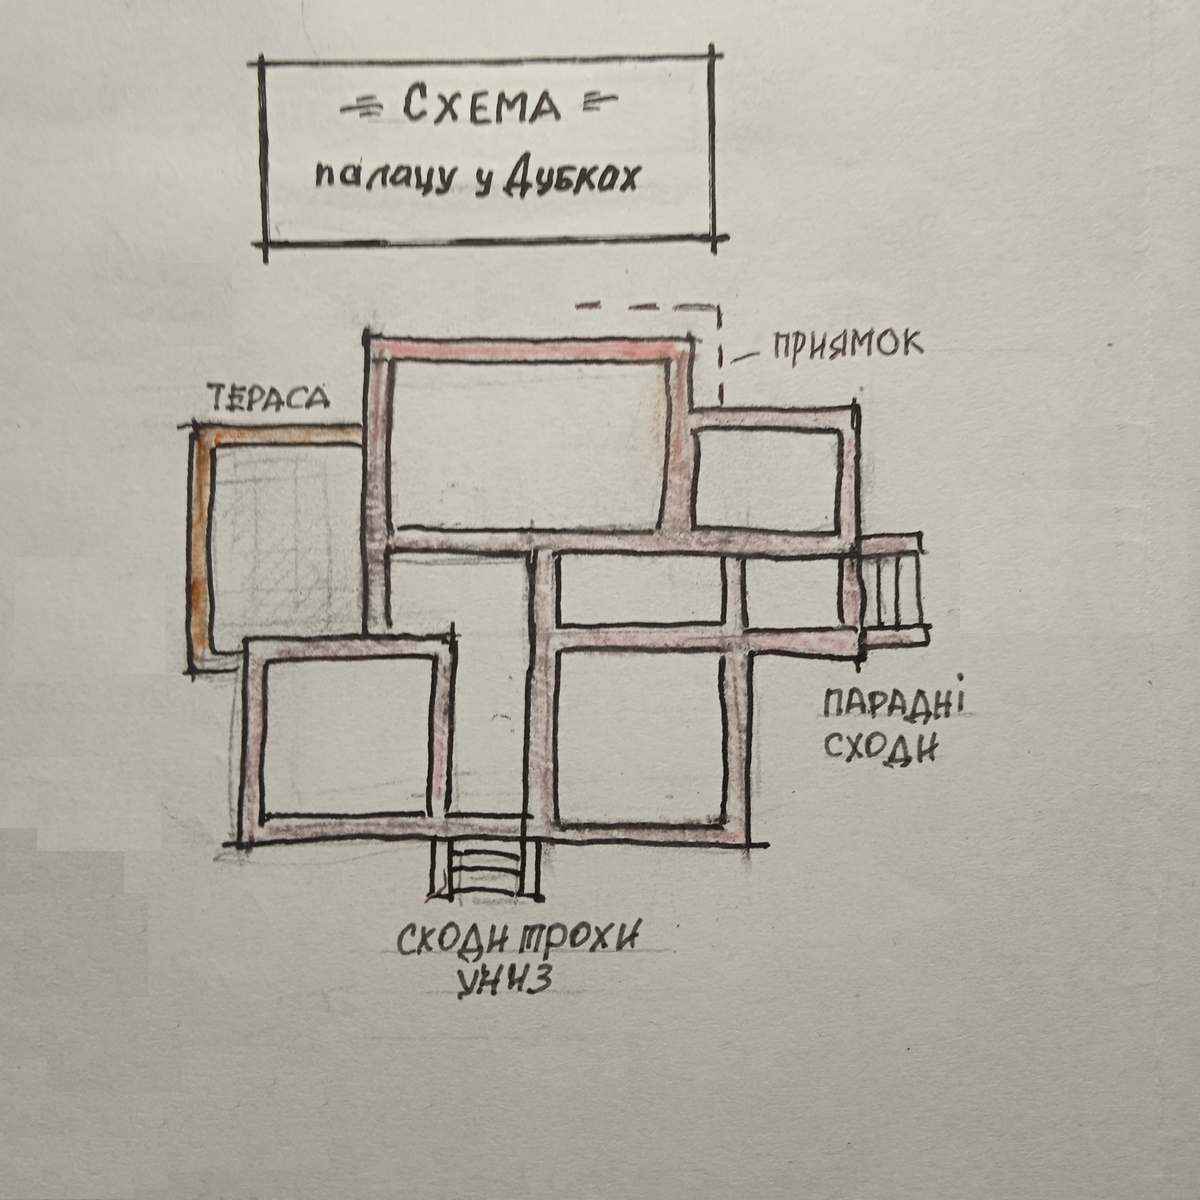 СХЕМА
палацу у Дубках
ПРИЯМОК
ТЕРАСА
ПАРАДНІ
СХОДИ
СХОДИ ТРОХИ
УНИЗ